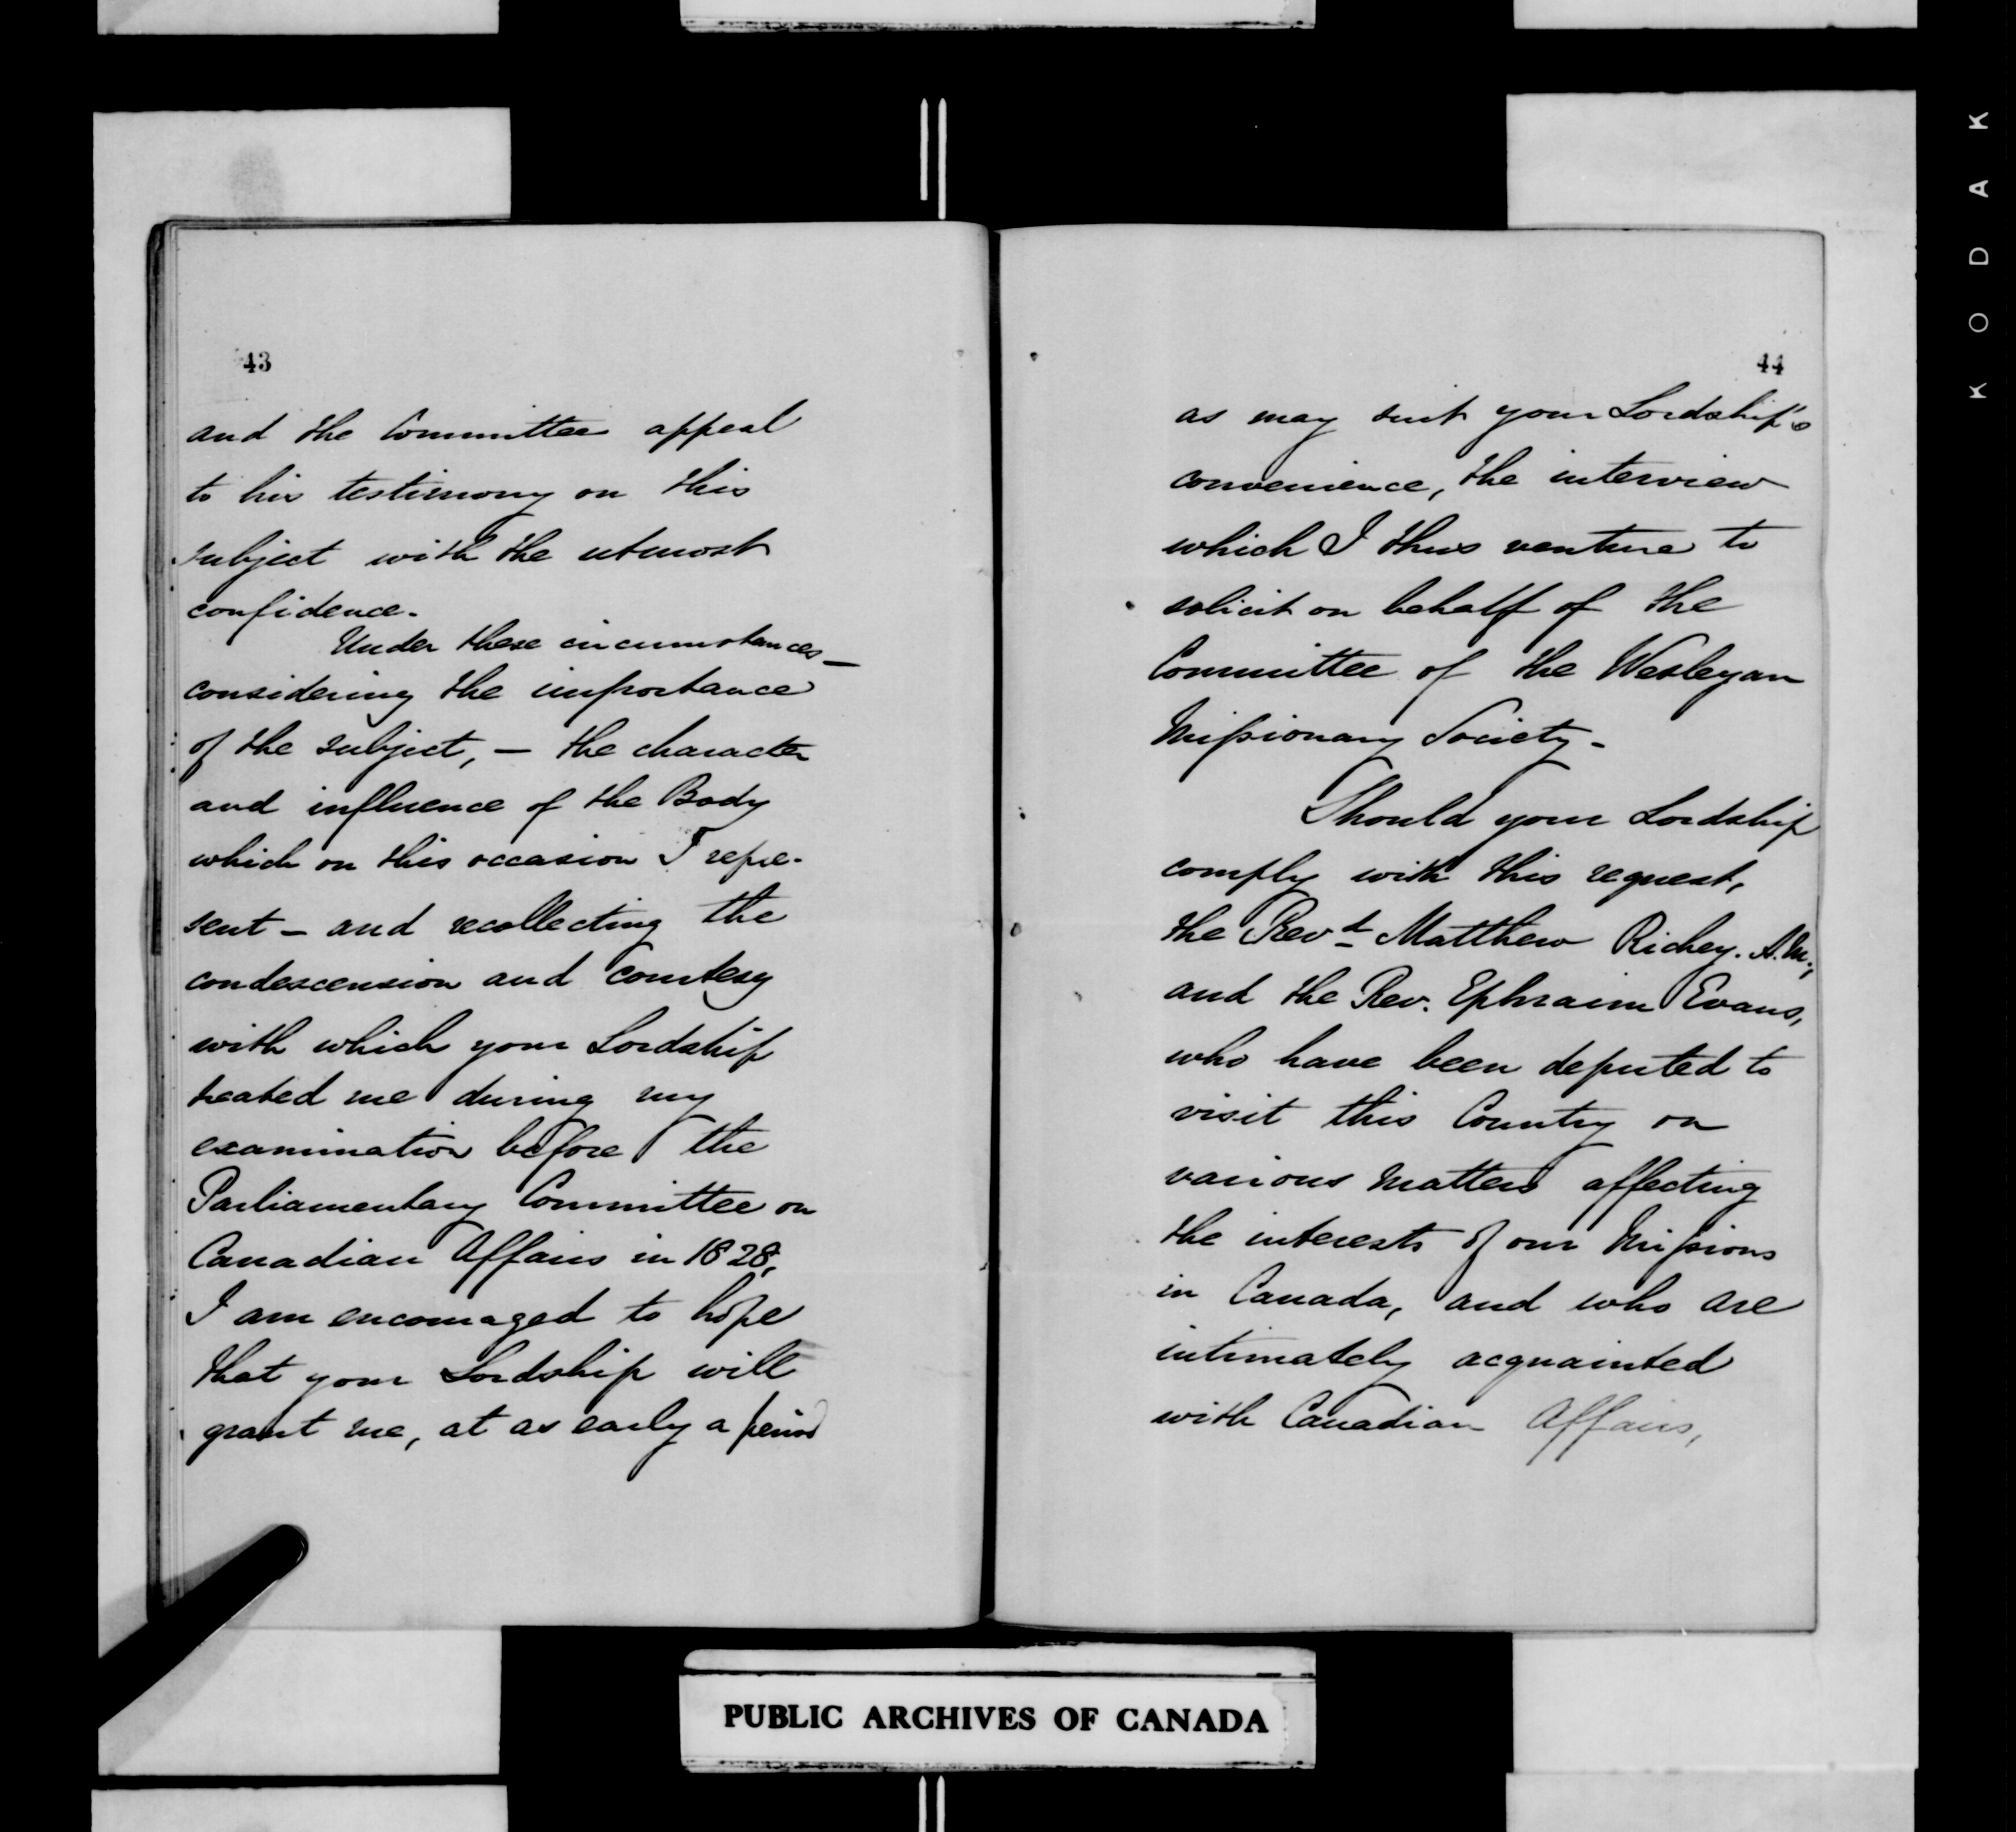 43
and the Committee appeal
to his testimony on this
subject with the utmost
confidence.
Under these circumstances —
considering the importance
of the subject, — the character
and influence of the Body
which on this occasion I repre-
sent — and recollecting the
condescension and courtesy
with which your Lordship
treated me during my
examination before the
Parliamentary Committee on
Canadian Affairs in 1828,
I am encouraged to hope
that your Lordship will
grant me, at as early a period
44
as may suit your Lordship's
convenience, the interview
which I thus venture to
solicit on behalf of the
Committee of the Wesleyan
Missionary Society -
Should your Lordship
comply with this request,
the Revd Matthew Richey. A.M.,
and the Rev. Ephraim Evans,
who have been deputed to
visit this Country on
various matters affecting
the interests of our Missions
in Canada, and who are
intimately acquainted
with Canadian Affairs,
PUBLIC ARCHIVES OF CANADA
KODAK